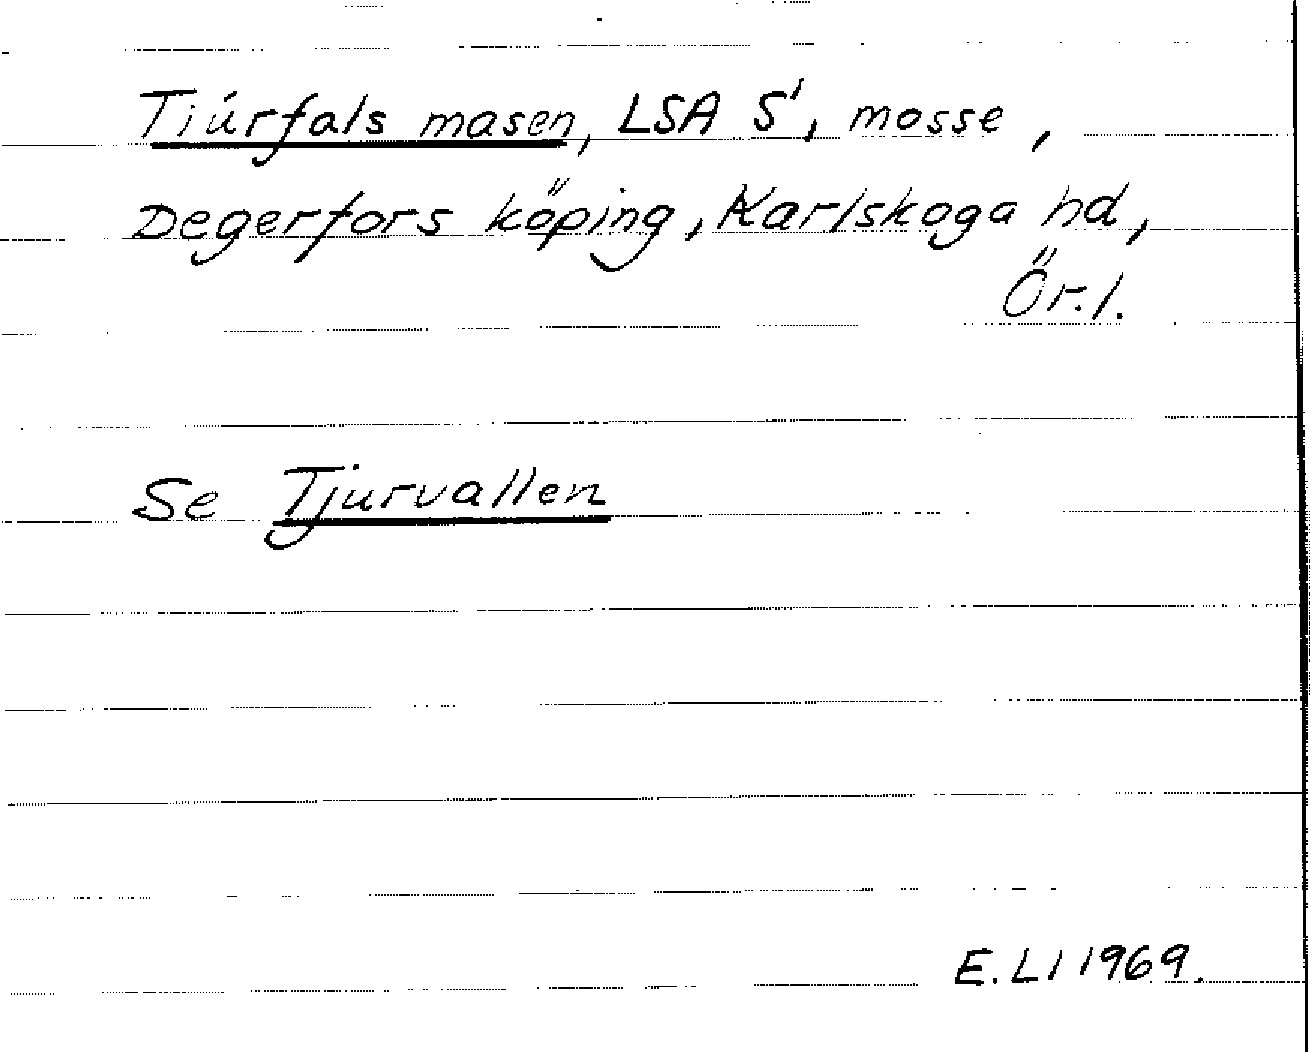 Tjúrfals masen, LSA S', mosse,
Degerfors köping, Karlskoga hd,
Ör.l.
Se Tjurvallen
E.Ll 1969.